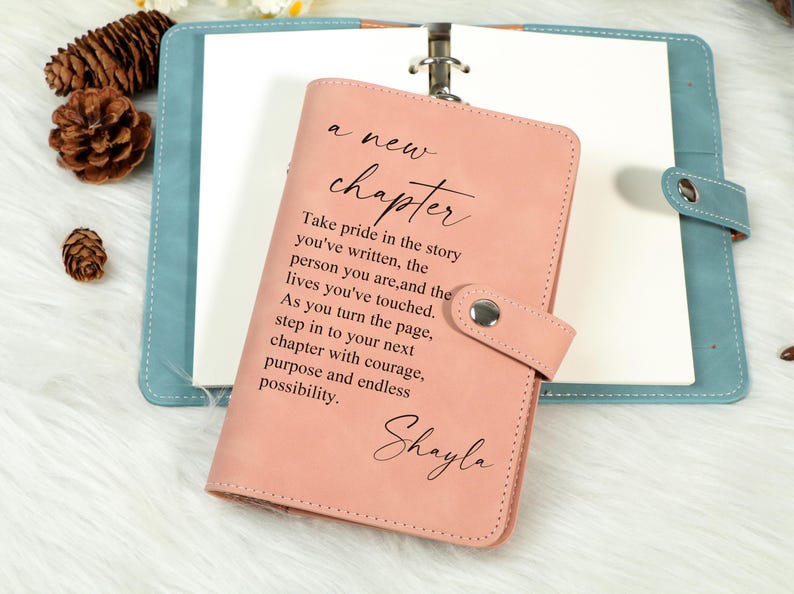 a new
chapter
Take pride in the story
you've written, the
person you are,and the
lives you've touched.
As you turn the page,
step in to your next
chapter with courage,
purpose and endless
possibility.
Shayla